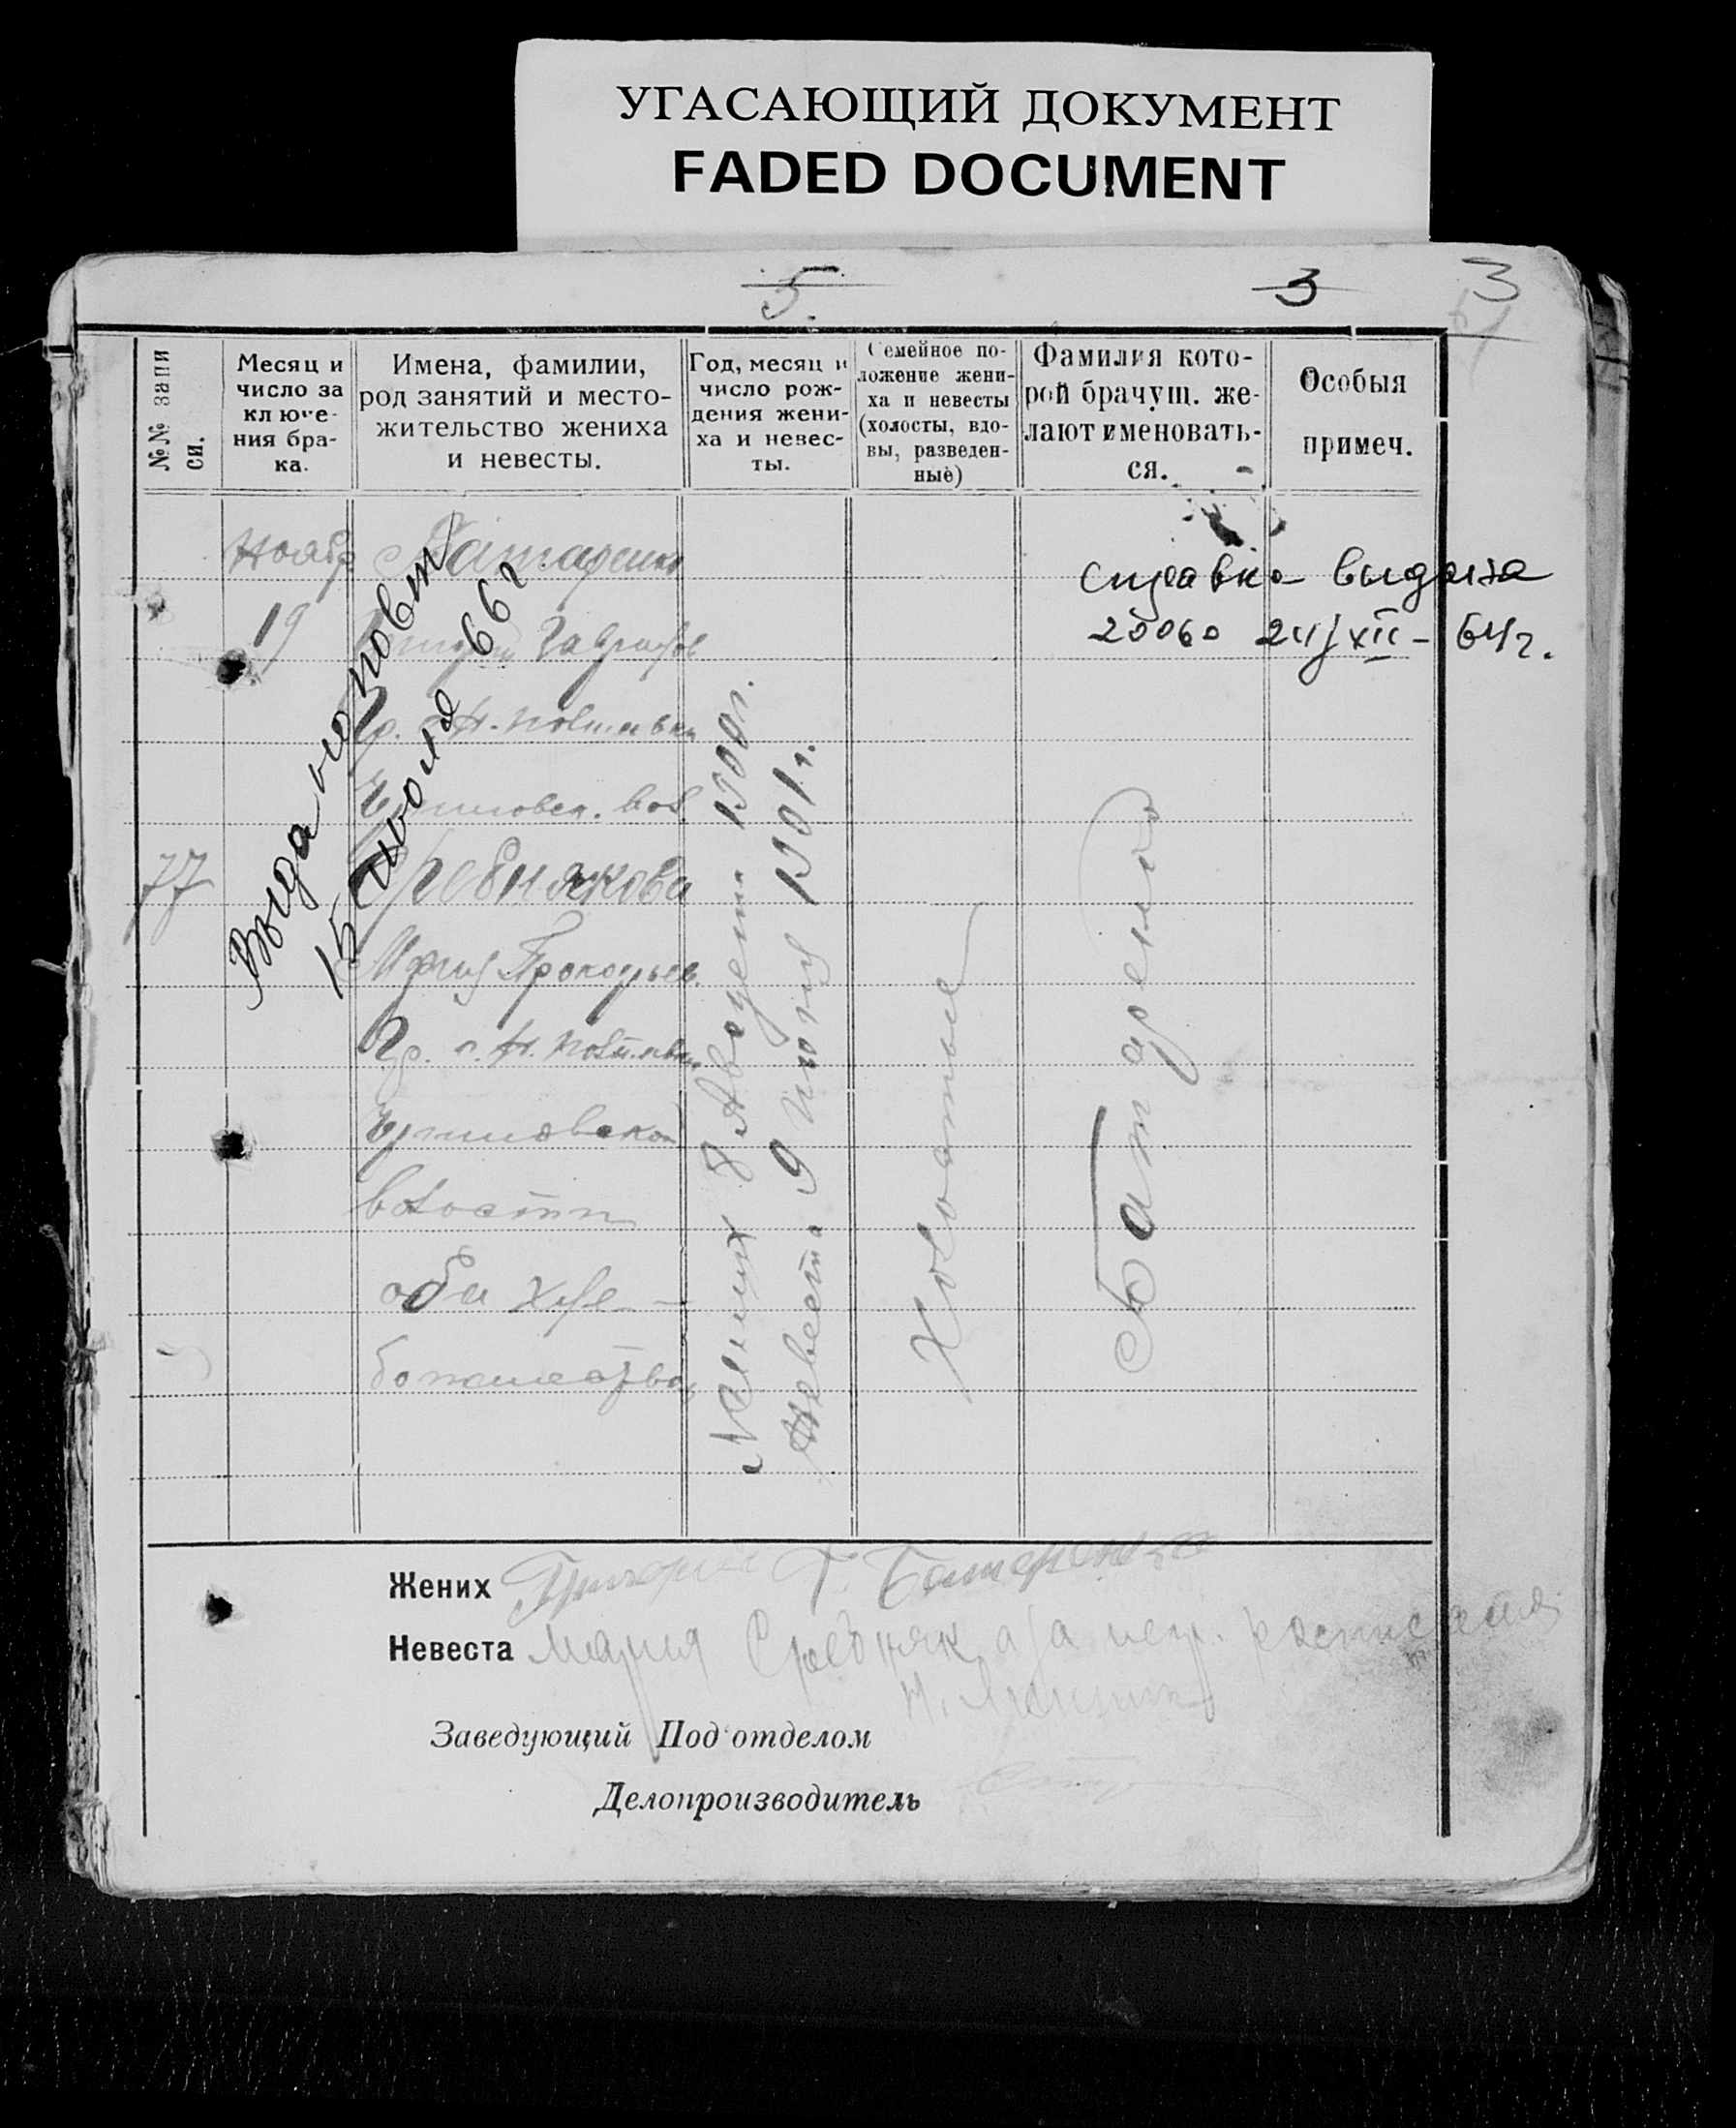 УГАСАЮЩИЙ ДОКУМЕНТ
FADED DOCUMENT
5.
3
3
№№ запи
си.
Месяц и
число за
ключе-
ния бра-
ка.
Имена, фамилии,
род занятий и место-
жительство жениха
и невесты.
Год, месяц и
число рож-
дения жени-
ха и невес-
ты.
Семейное по-
ложение жени-
ха и невесты
(холосты, вдо-
вы, разведен-
ные)
Фамилия кото-
рой брачущ. же-
лают именовать-
ся.
Особыя
примеч.
77
Ноябр
19
Батаренко
Гр. с. Н.
вол.
Среднякова
Мария Прокофьев.
Гр. с. Н.
волости
оба хле-
бопашества
Выдано повт
15 июля 66 г
Жених 8 Августа 1900 г.
Невеста 9 1901 г.
Холостые
Батаренко
справка выдана
24/XII - 64 г.
Жених Григорий Г. Батаренко
Невеста Мария Среднякова
Заведующий Подотделом
Делопроизводитель